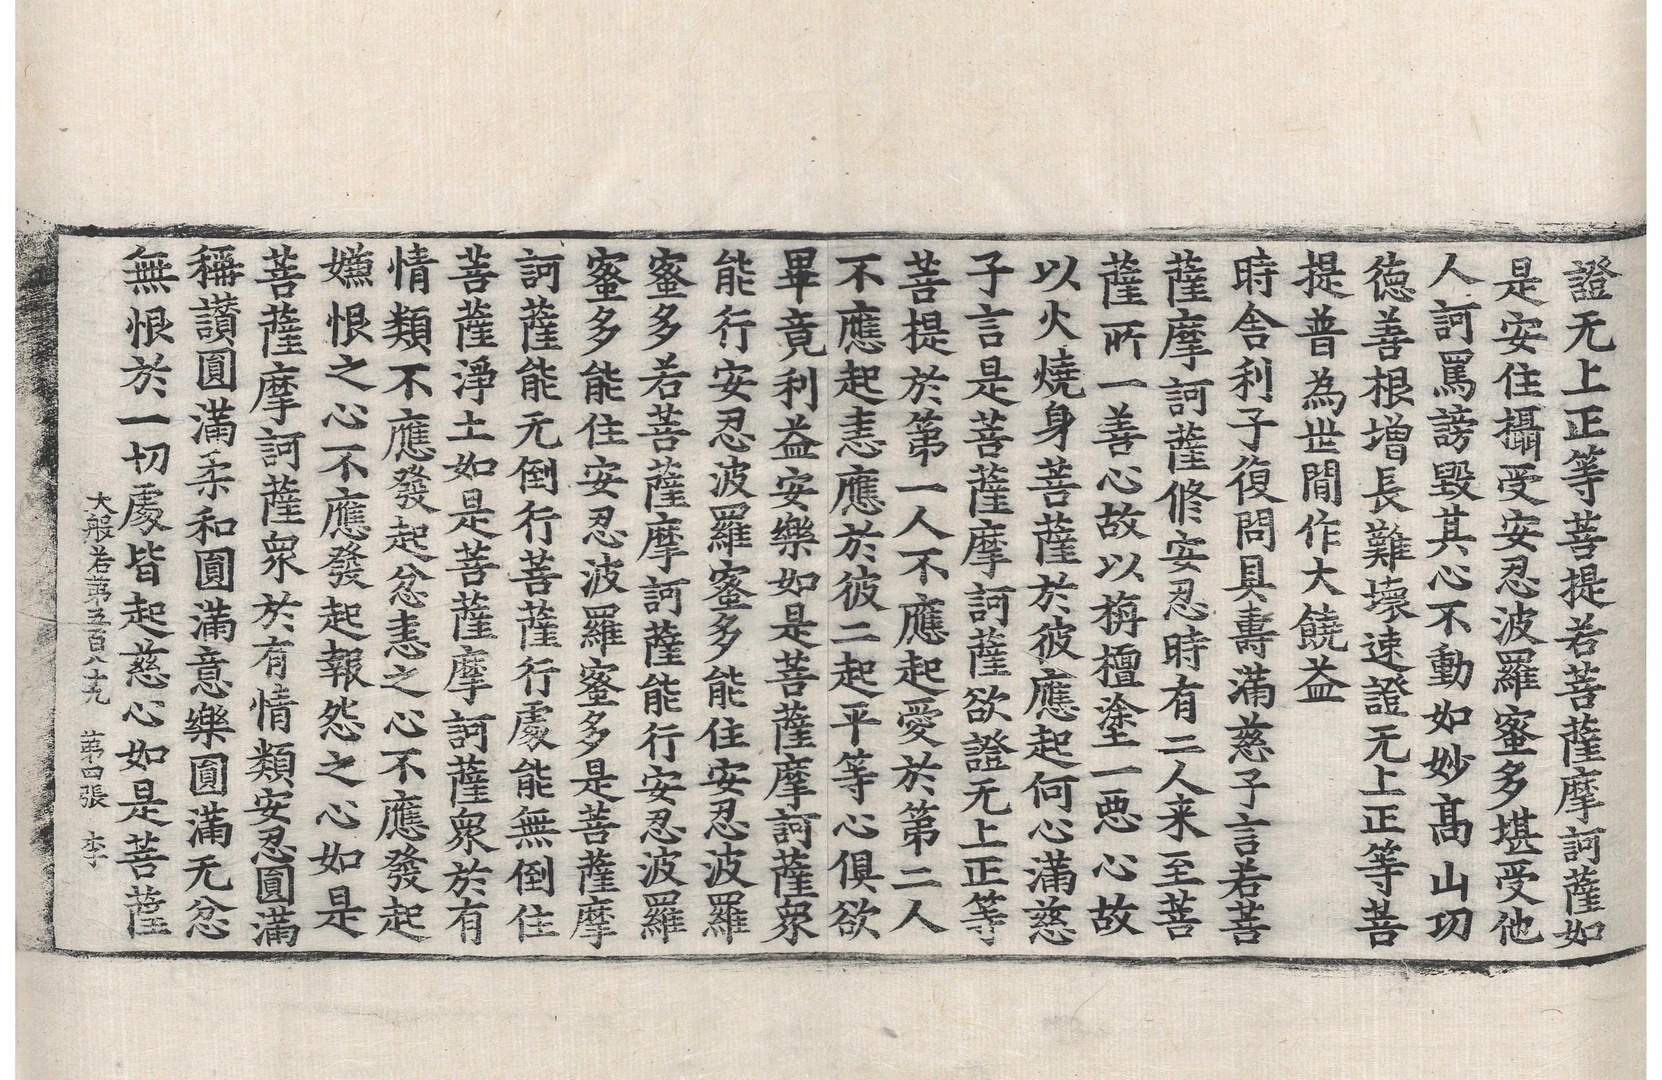 證无上正等菩提若菩薩摩訶薩如
是安住攝受安忍波羅蜜多堪受他
人訶罵謗毀其心不動如妙高山功
德善根增長難壞速證无上正等菩
提普為世間作大饒益
時舍利子復問具壽滿慈子言若菩
薩摩訶薩修安忍時有二人来至菩
薩所一善心故以栴檀塗一惡心故
以火燒身菩薩於彼應起何心滿慈
子言是菩薩摩訶薩欲證无上正等
菩提於第一人不應起愛於第二人
不應起恚應於彼二起平等心俱欲
畢竟利益安樂如是菩薩摩訶薩衆
能行安忍波羅蜜多能住安忍波羅
蜜多若菩薩摩訶薩能行安忍波羅
蜜多能住安忍波羅蜜多是菩薩摩
訶薩能无倒行菩薩行處能無倒住
菩薩淨土如是菩薩摩訶薩衆於有
情類不應發起忿恚之心不應發起
嫌恨之心不應發起報怨之心如是
菩薩摩訶薩衆於有情類安忍圓滿
稱讚圓滿柔和圓滿意樂圓滿无忿
無恨於一切處皆起慈心如是菩薩
大般若第五百八十九　第四張　李